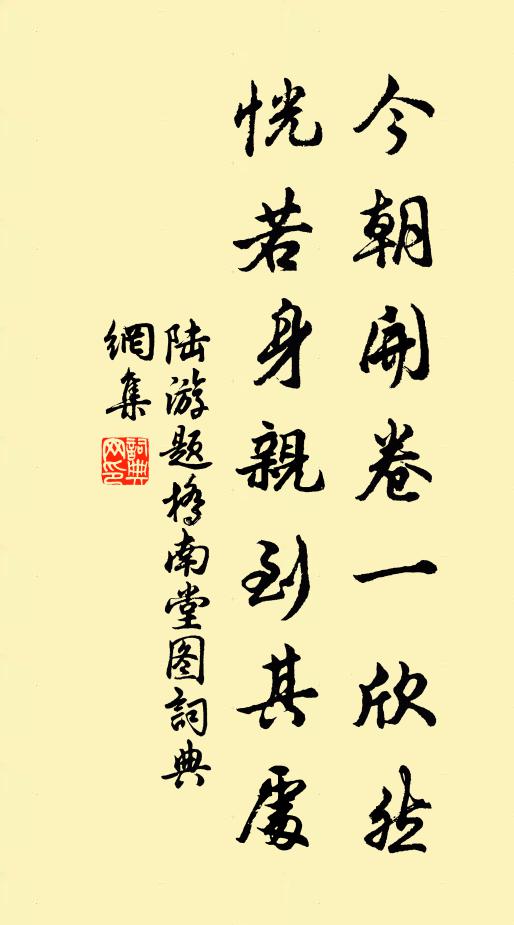 今朝開卷一欣然
恍若身親到其處
陆游題橋南堂图詞典
網集
詞典網印